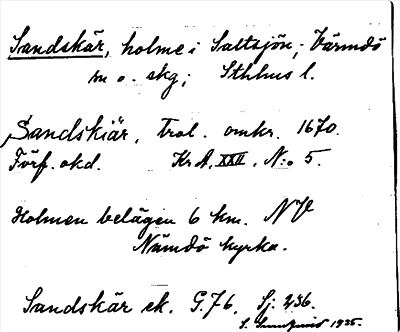 Sandskär, holme i Saltsjön; Värmdö
m o. skg; Sthlms l.
Sandskiär, trol. omkr. 1670.
Förf. okd. Kr A. XXII. N:o 5.
Holmen belägen 6 km. NV
Nämdö kyrka.
Sandskär ek. G. 76. Sj. 236.
S. 1935.